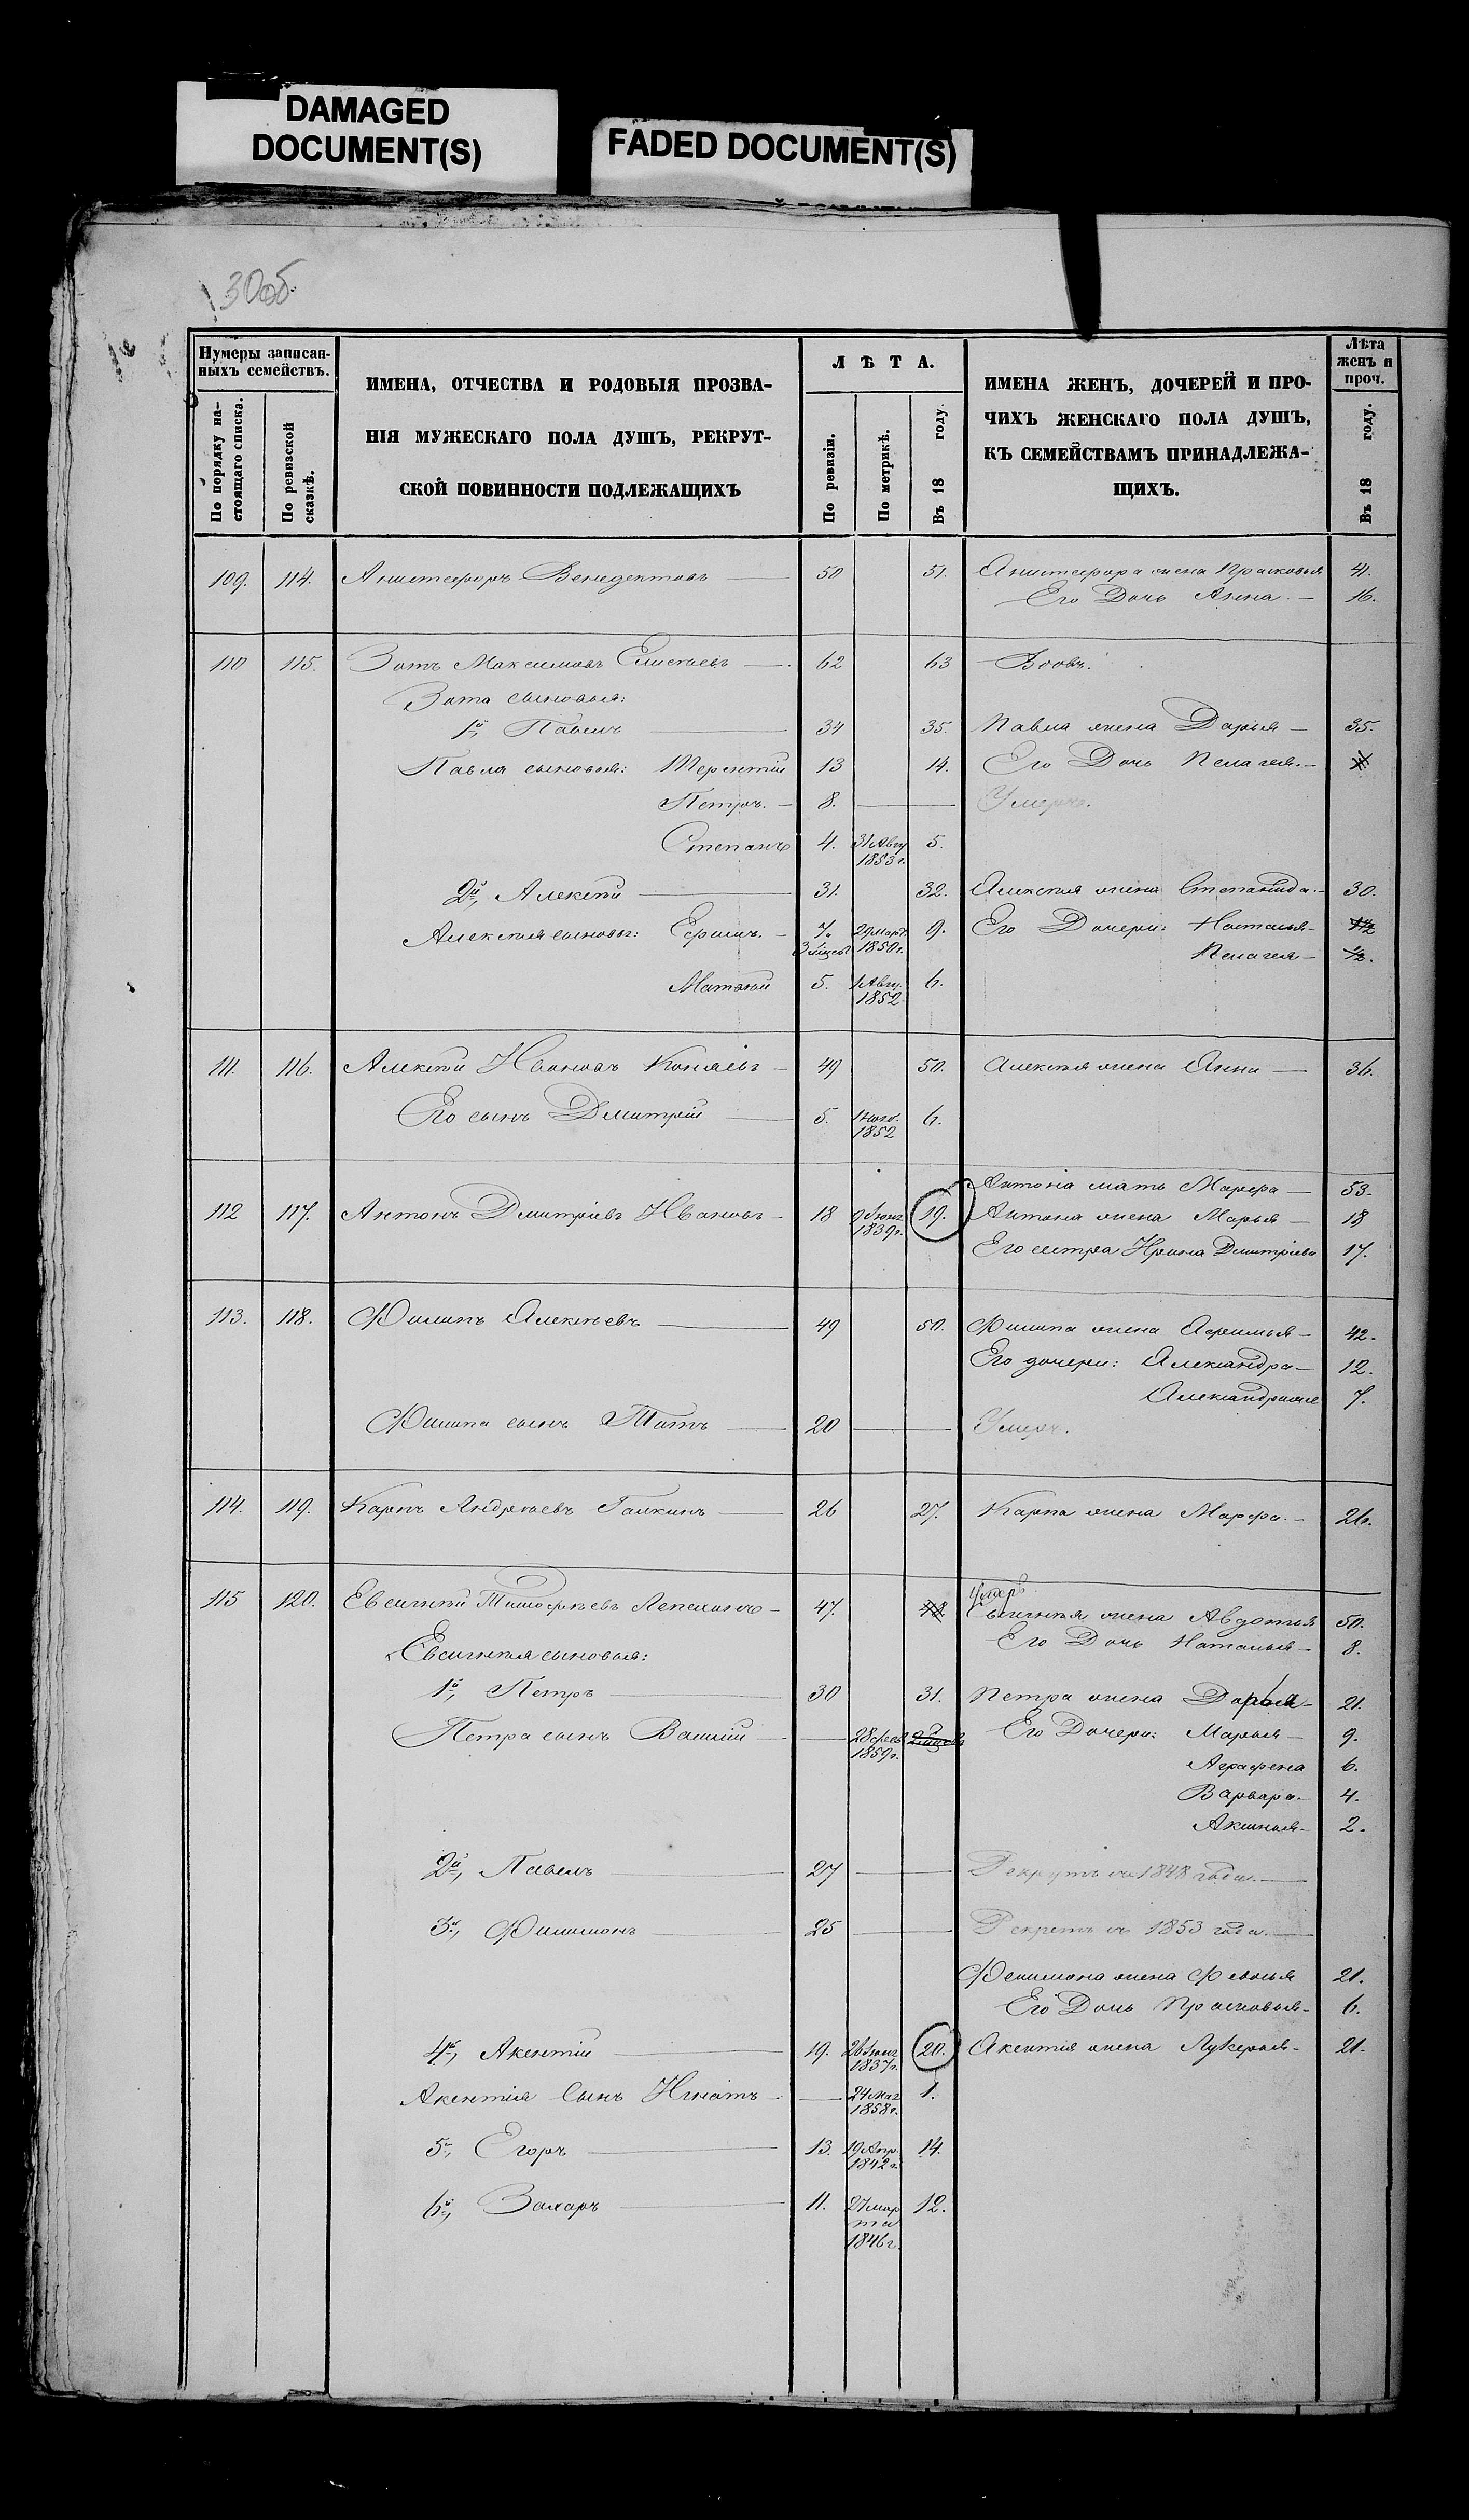 DAMAGED
DOCUMENT(S)
FADED DOCUMENT(S)
30об.
Нумеры записан-
ныхъ семействъ.
По порядку на-
стоящаго списка.
По ревизской
сказкѣ.
ИМЕНА, ОТЧЕСТВА И РОДОВЫЯ ПРОЗВА-
НІЯ МУЖЕСКАГО ПОЛА ДУШЪ, РЕКРУТ-
СКОЙ ПОВИННОСТИ ПОДЛЕЖАЩИХЪ
ЛѢТА.
По ревизіи.
По метрикѣ.
Въ 18 году.
ИМЕНА ЖЕНЪ, ДОЧЕРЕЙ И ПРО-
ЧИХЪ ЖЕНСКАГО ПОЛА ДУШЪ,
КЪ СЕМЕЙСТВАМЪ ПРИНАДЛЕЖА-
ЩИХЪ.
Лѣта
женъ и
проч.
Въ 18 году.
109. 114. Аниктефоръ Венедектовъ 50 51. жена Прасковья 41.
Его Дочь Анна. 16.
110 115. Зотъ Максимовъ 62 63 Вдовъ.
Зота сыновья:
1й, Павелъ 34 35. Павла жена Дарья 35.
Павла сыновья: Терентій 13 14. Его Дочь Пелагея.
Петръ. 8. Умеръ.
Степанъ 4. 31 Авгу 1853 г. 5.
2й, Алексѣй 31. 32. Алексѣя жена Степанида. 30.
Алексѣя сыновья: Ефимъ. 7. 3 мѣсец 29 март 1850 г. 9. Его Дочери: Наталья
Пелагея ½.
Матвѣй 5. 1 Авгу. 1852 6.
111. 116. Алексѣй Ивановъ Коняевъ 49 50. Алексѣя жена Анна 36.
Его сынъ Дмитрій 5. 1852 6.
Антона мать Марфа 53.
112 117. Антонъ Дмитріевъ Ивановъ 18 9 Іюня 1839 г. 19. Антона жена Марья 18
Его сестра Ирина Дмитріева 17.
113. 118. Филипъ Алексѣевъ 49 50. Филипа жена Афимья 42.
Его дочери: Александра 12.
7.
Филипа сынъ Титъ 20 Умеръ.
114. 119. Карпъ Андреевъ Галкинъ 26 27. Карпа жена Марфа. 26.
Умеръ
115 120. Евсигнѣй Тимофѣевъ Лепехинъ 47. 48 Евсигнѣя жена Авдотья 50.
Евсигнѣя сыновья: Его Дочь Наталья 8.
1й, Петръ 30 31. Петра жена Дарья 21.
Петра сынъ Василій 28 февр 1859 г. Его Дочери: Марья 9.
Аграфена 6.
Варвара 4.
Аксинья 2.
2й, Павелъ 27 Рекрутъ съ 1848 года.
3й, Филимонъ 25 Рекрутъ съ 1853 года.
Филимона жена Февонья 21.
Его Дочь Прасковья 6.
4й, Акентій 19. 26 Іюня 1837 г. 20. Акентія жена Лукерья 21.
Акентія Сынъ Игнатъ 24 мая 1858 г. 1.
5й, Егоръ 13. 19 Апр. 1842 г. 14.
6й, Захаръ 11. 27 марта 1846 г. 12.